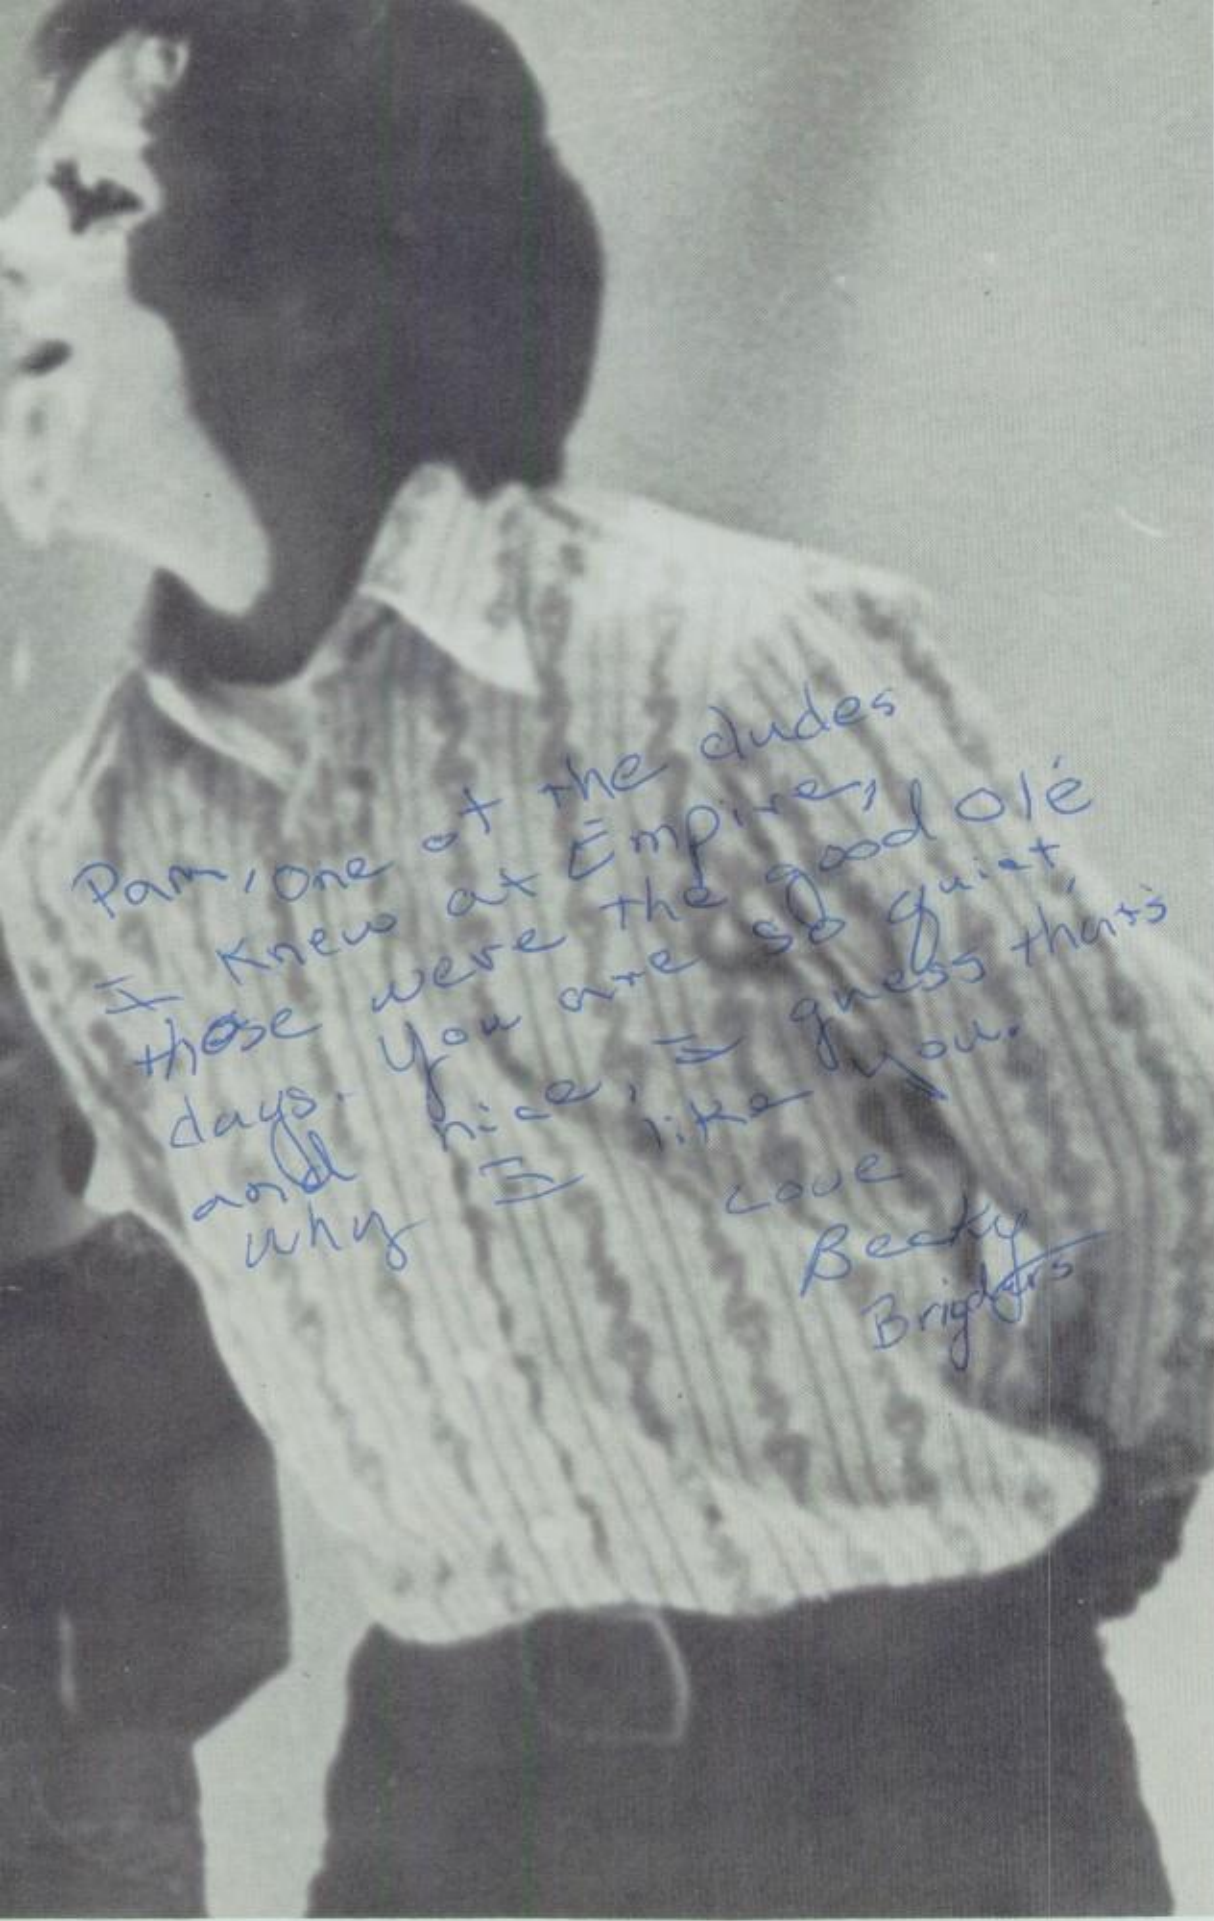 Pam, one of the dudes
I knew at Empire,
those were the good olé
days. You are so quiet,
and nice, I guess that's
why I like you.
Love
Becky
Bridgers